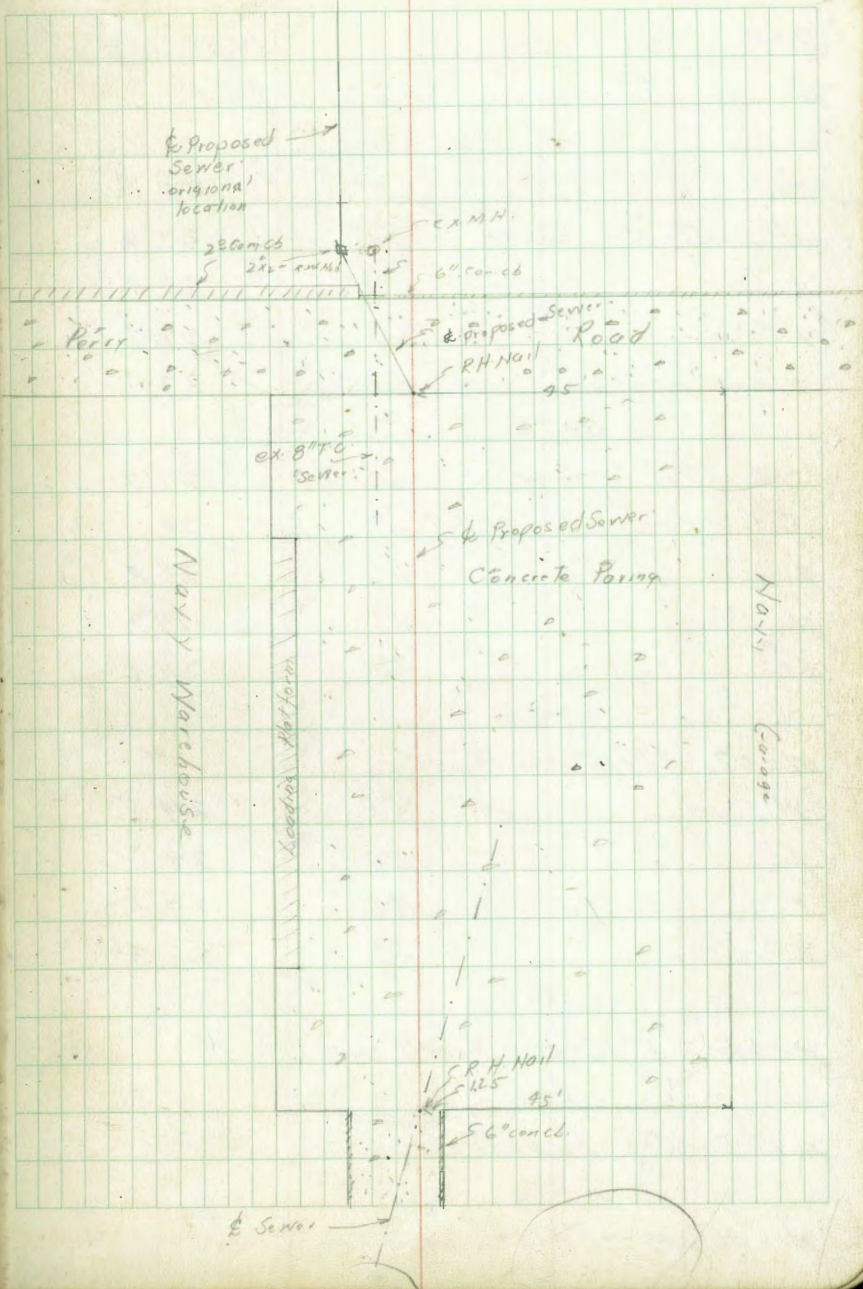 ℄ Proposed
Sewer
origional
location
ex. M.H.
6" con cb
Perry Road
℄ proposed Sewer
R.H. Nail
45
ex. 8" T.C.
Sewer
℄ Proposed Sewer
Concrete Paving
Navy Warehouse
Loading Platform
Navy Garage
R.H. Nail
1.25
45'
6" con cb.
℄ Sewer